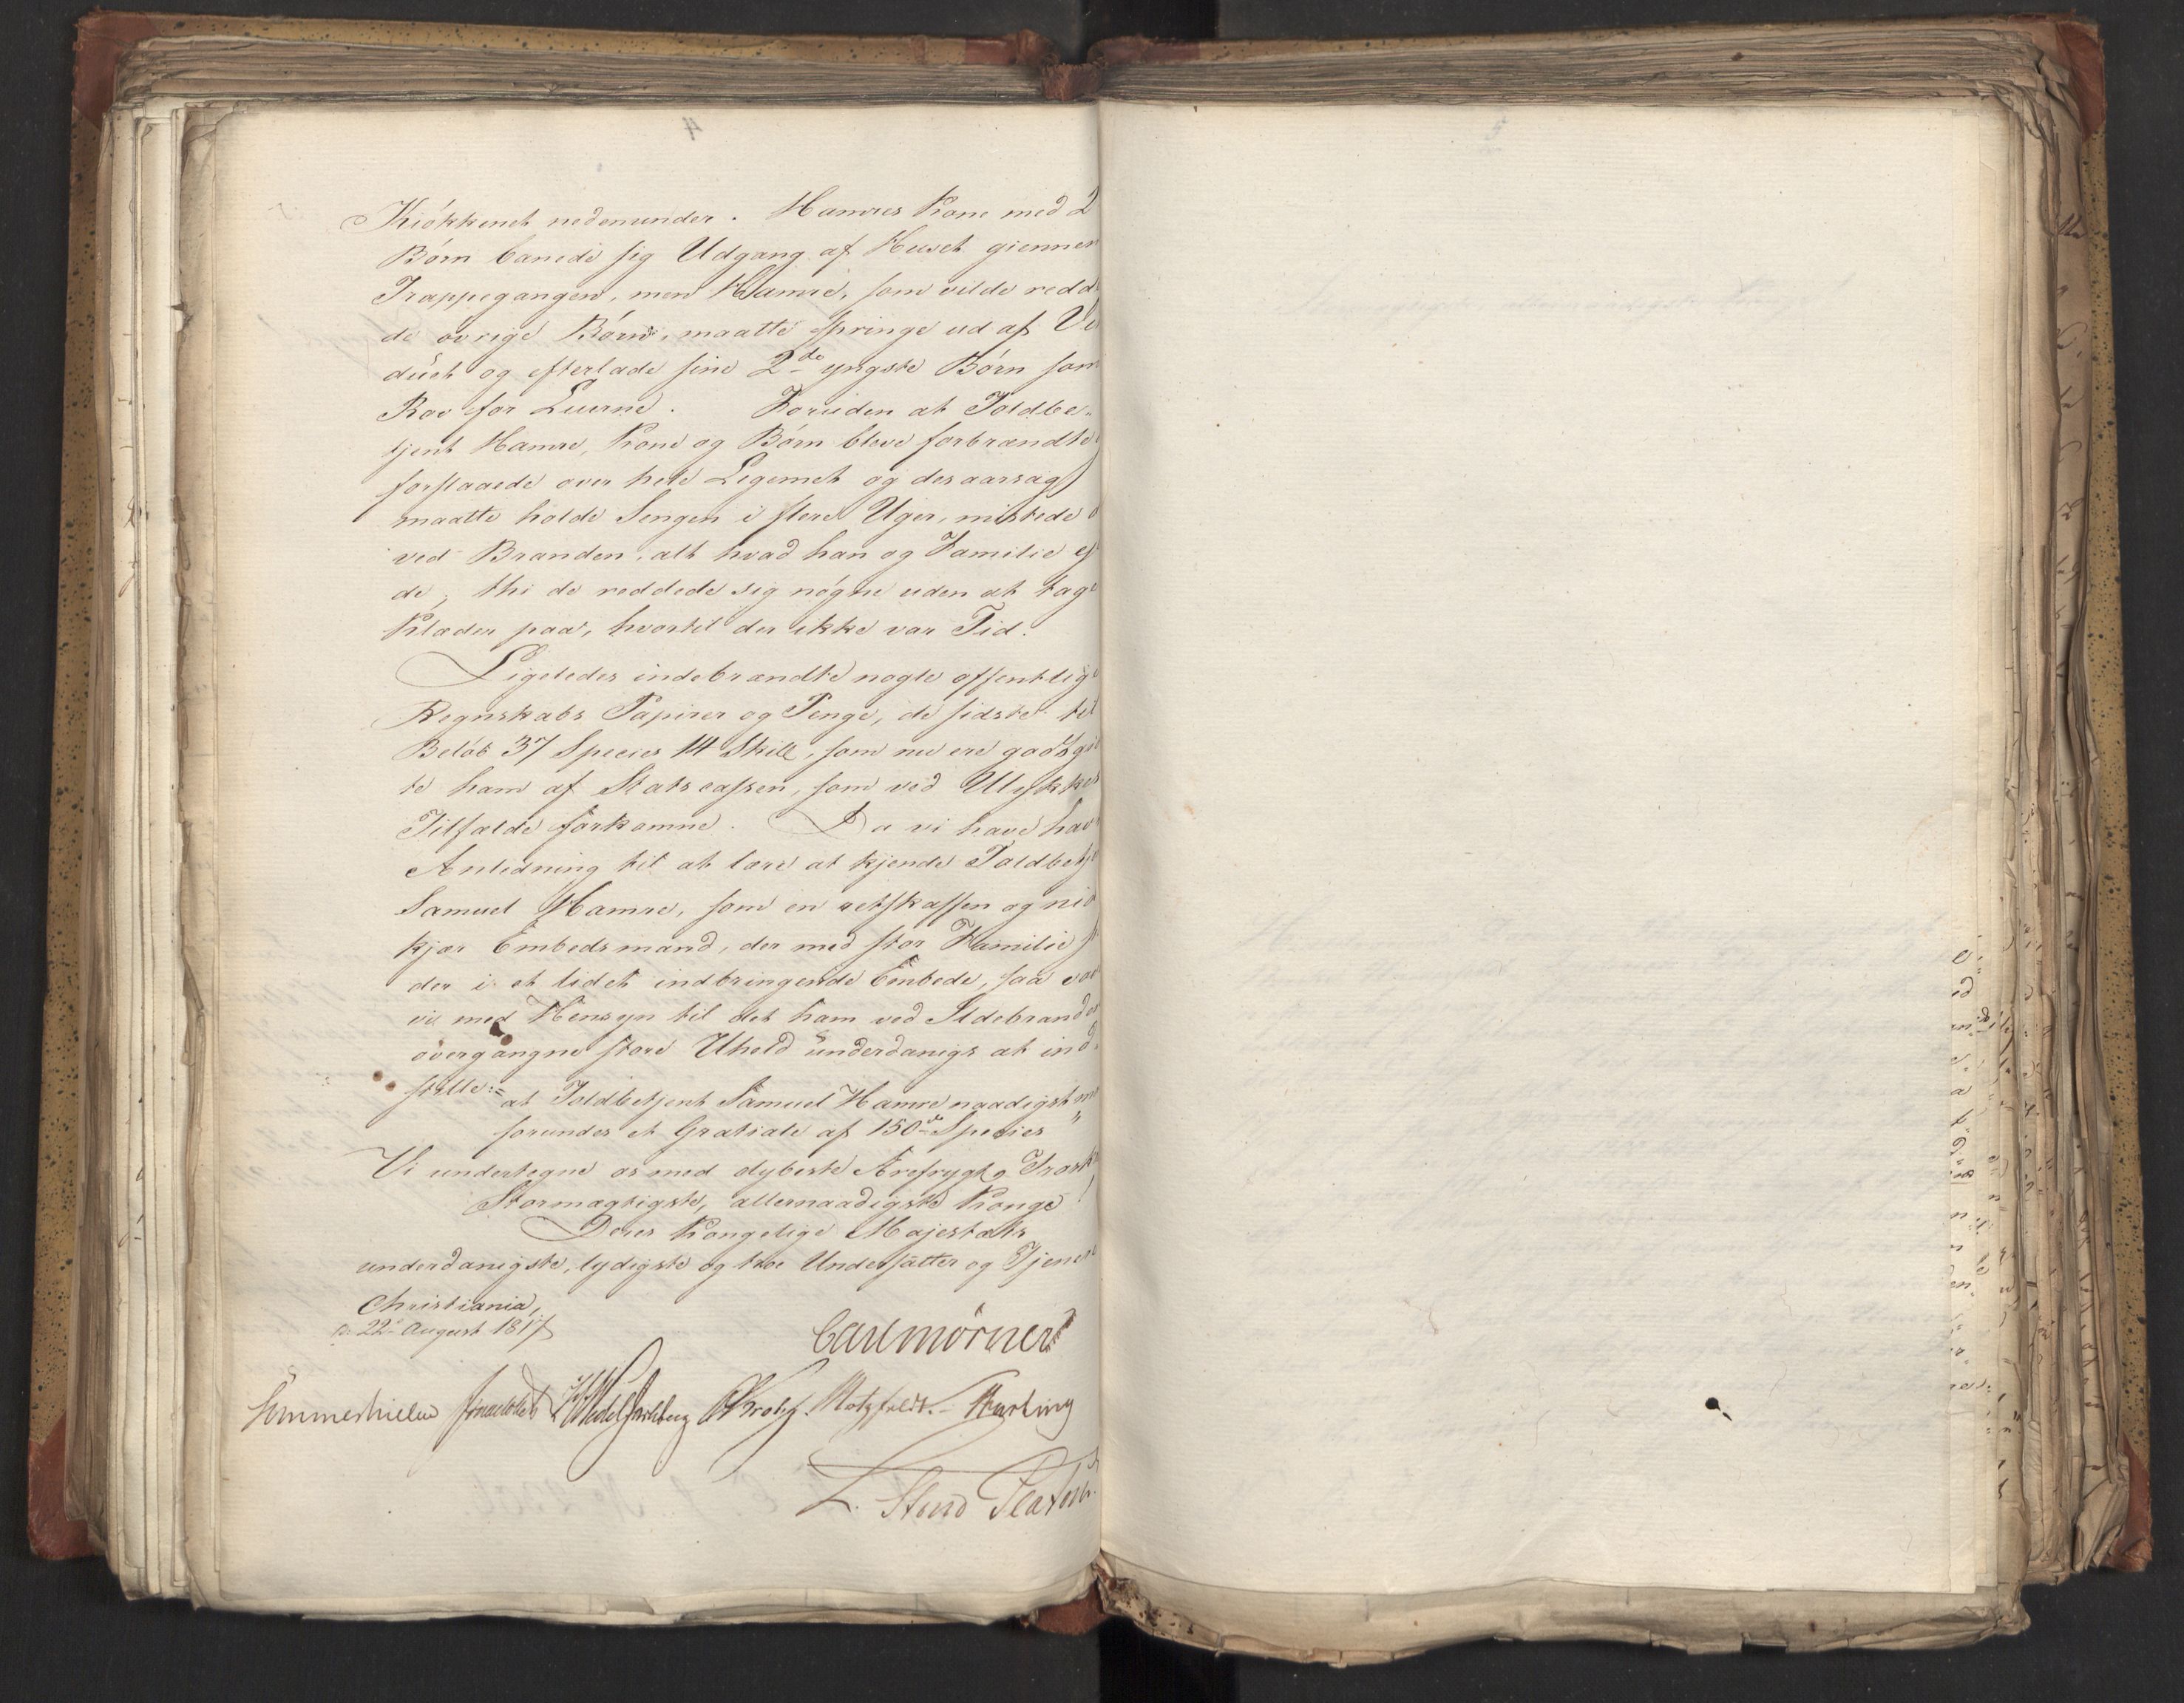 Kiökkenet nedenunder. Hamres Kone med 2
Börn banede sig Udgang af Huset giennem
Trappegangen, men Hamre, som vilde redde
de övrige Börn, maatte springe ud af Vi
duet og efterlade sine 2de yngste Börn som
Rov for Luerne. Foruden at Toldbe-
tjent Hamre, Kone og Börn bleve forbrændte
forslaaede over hele Legemet og desaarsag
maatte holde Sengen i flere Uger, mistede
ved Branden, alt hvad han og Familie ei
de, thi de reddede sig nögne uden at tage
Klæder paa, hvortil der ikke var Tid.
Ligeledes indebrændte nogle offentlige
Regnskabs Papirer og Penge, de sidste til
Belöb 37 Species 14 Skill, som nu ere godtgi
te ham af Statscassen, som ved Ulykkes
Tilfælde forkomne. Da vi have hav
Anledning til at lære at kjende Toldbetje
Samuel Hamre, som en retskaffen og nid
kjær Embedsmand, der med stor Familie
der i et lidet indbringende Embede, saa
vi med Hensyn til det ham ved Ildebranden
overgangne store Uheld underdanigst at ind-
stille:=
at Toldbetjent Samuel Hamre naadigst
forundes et Gratiale af 150de Species"
Vi undertegne os med dybeste Ærefrygt. Troesk
Stormægtigste, allernaadigste Konge!
Deres Kongelige Majestæts
underdanigste, lydigste og troe Undersåtter og Tjenere
Christiania,
d. 22de August 1817
Carl Mörner
Sommerhielm JWedelJarlsberg Krohg. Motzfeldt. Hartvig
L. Stoud Platou.